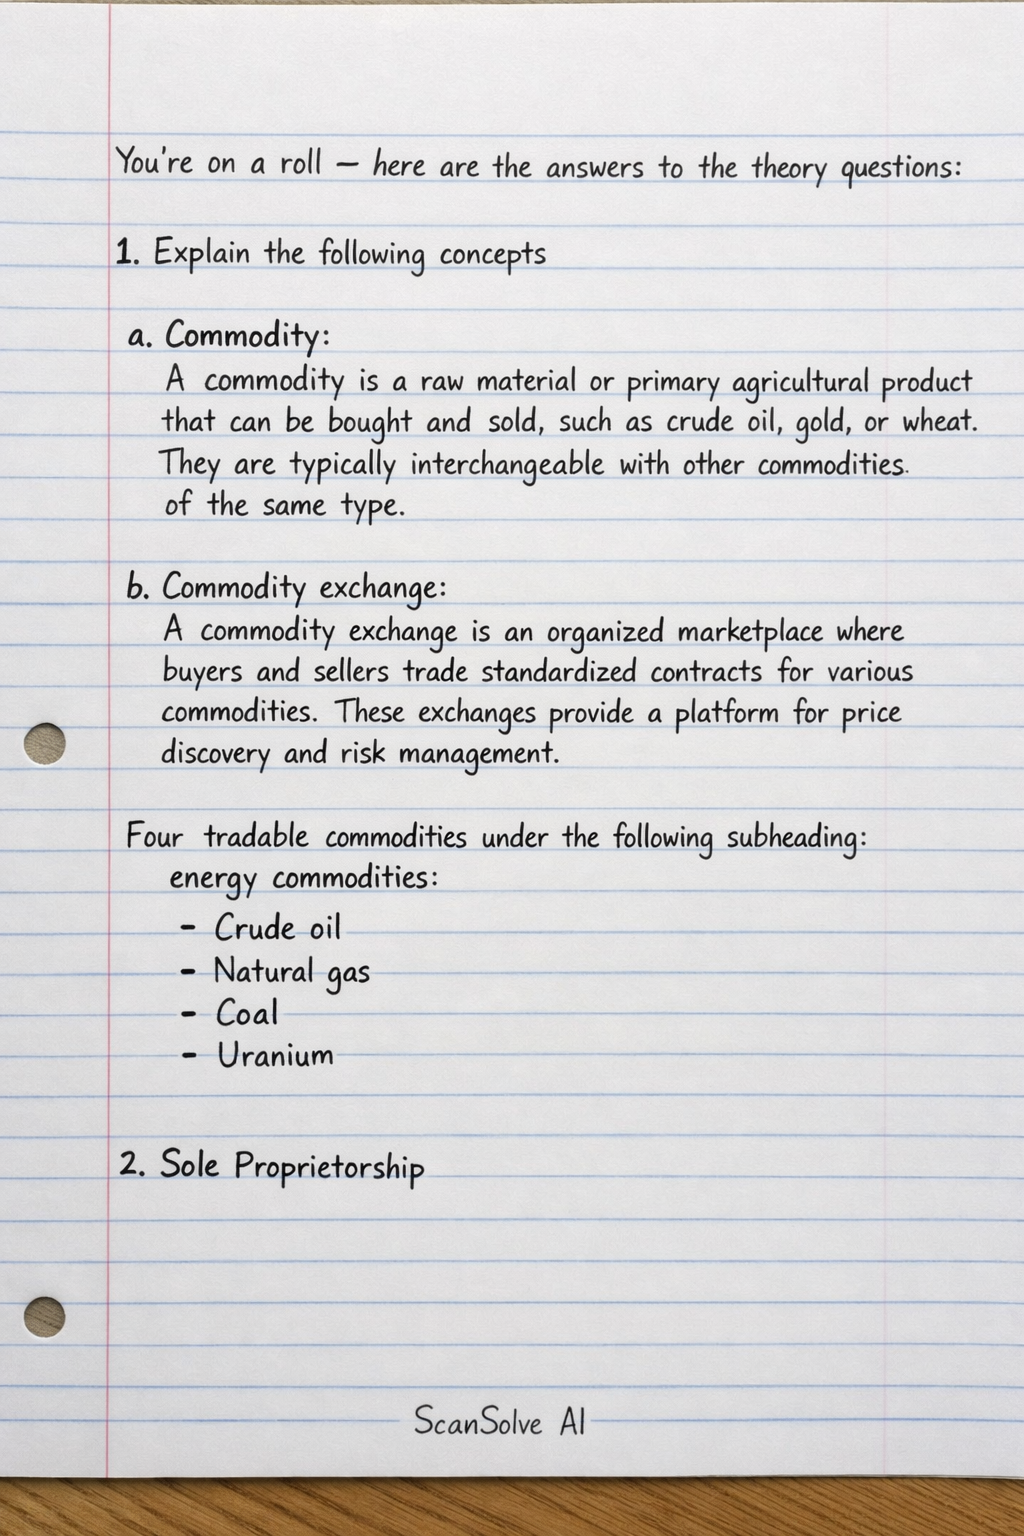 You're on a roll — here are the answers to the theory questions:
1. Explain the following concepts
a. Commodity:
A commodity is a raw material or primary agricultural product
that can be bought and sold, such as crude oil, gold, or wheat.
They are typically interchangeable with other commodities.
of the same type.
b. Commodity exchange:
A commodity exchange is an organized marketplace where
buyers and sellers trade standardized contracts for various
commodities. These exchanges provide a platform for price
discovery and risk management.
Four tradable commodities under the following subheading:
energy commodities:
- Crude oil
- Natural gas
- Coal
- Uranium
2. Sole Proprietorship
ScanSolve AI